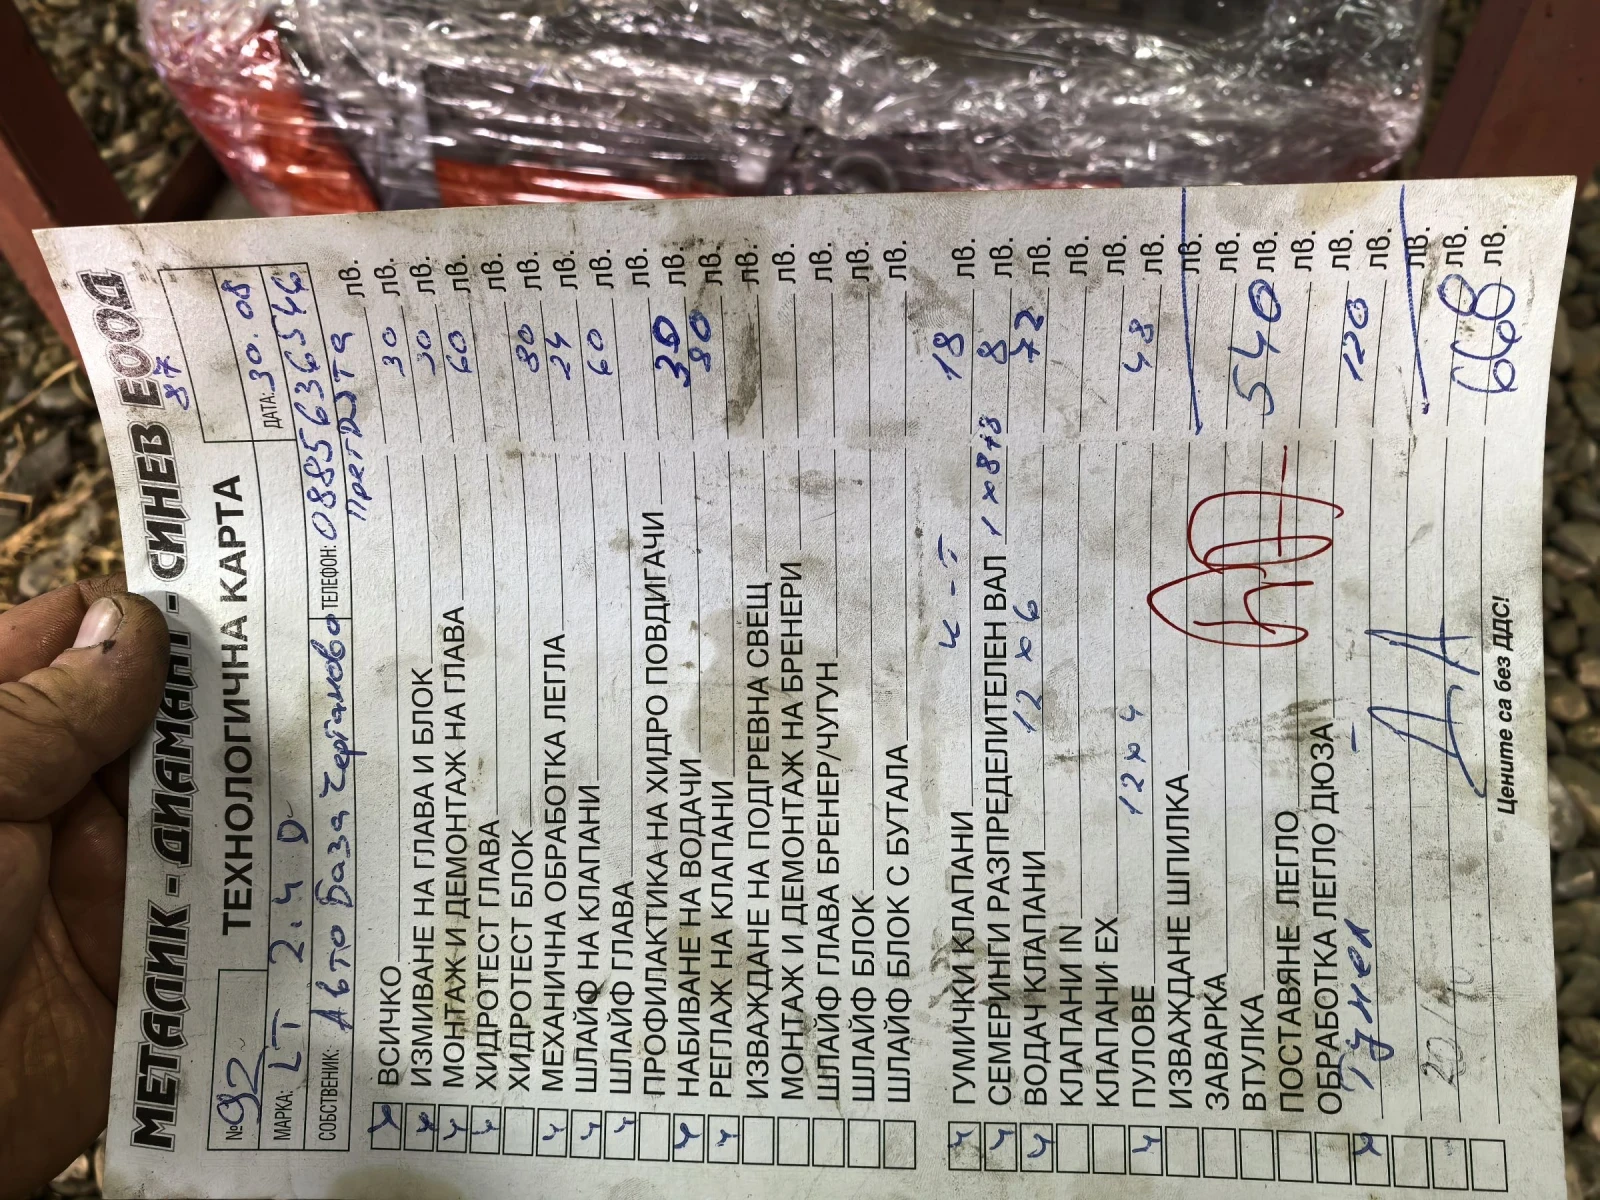 МЕТАЛИК - ДИАМАНТ - СИНЕВ ЕООД
87
ТЕХНОЛОГИЧНА КАРТА
№ 92
ДАТА: 30.08
МАРКА: LT 2.4 D
СОБСТВЕНИК: Авто База Чертаново ТЕЛЕФОН: 0885636544
ВСИЧКО лв.
ИЗМИВАНЕ НА ГЛАВА И БЛОК 30 лв.
МОНТАЖ И ДЕМОНТАЖ НА ГЛАВА 30 лв.
ХИДРОТЕСТ ГЛАВА 60 лв.
ХИДРОТЕСТ БЛОК лв.
МЕХАНИЧНА ОБРАБОТКА ЛЕГЛА 80 лв.
ШЛАЙФ НА КЛАПАНИ 24 лв.
ШЛАЙФ ГЛАВА 60 лв.
ПРОФИЛАКТИКА НА ХИДРО ПОВДИГАЧИ лв.
НАБИВАНЕ НА ВОДАЧИ 30 лв.
РЕГЛАЖ НА КЛАПАНИ 80 лв.
ИЗВАЖДАНЕ НА ПОДГРЕВНА СВЕЩ лв.
МОНТАЖ И ДЕМОНТАЖ НА БРЕНЕРИ лв.
ШЛАЙФ ГЛАВА БРЕНЕР/ЧУГУН лв.
ШЛАЙФ БЛОК лв.
ШЛАЙФ БЛОК С БУТАЛА лв.
ГУМИЧКИ КЛАПАНИ к-т 18 лв.
СЕМЕРИНГИ РАЗПРЕДЕЛИТЕЛЕН ВАЛ 1 x 8 8 лв.
ВОДАЧ КЛАПАНИ 12 x 6 72 лв.
КЛАПАНИ IN лв.
КЛАПАНИ EX лв.
ПУЛОВЕ 12 x 4 48 лв.
ИЗВАЖДАНЕ ШПИЛКА лв.
ЗАВАРКА лв.
ВТУЛКА 540 лв.
ПОСТАВЯНЕ ЛЕГЛО лв.
ОБРАБОТКА ЛЕГЛО ДЮЗА лв.
Тунел - 120 лв.
лв.
20/10 лв.
668 лв.
Цените са без ДДС!